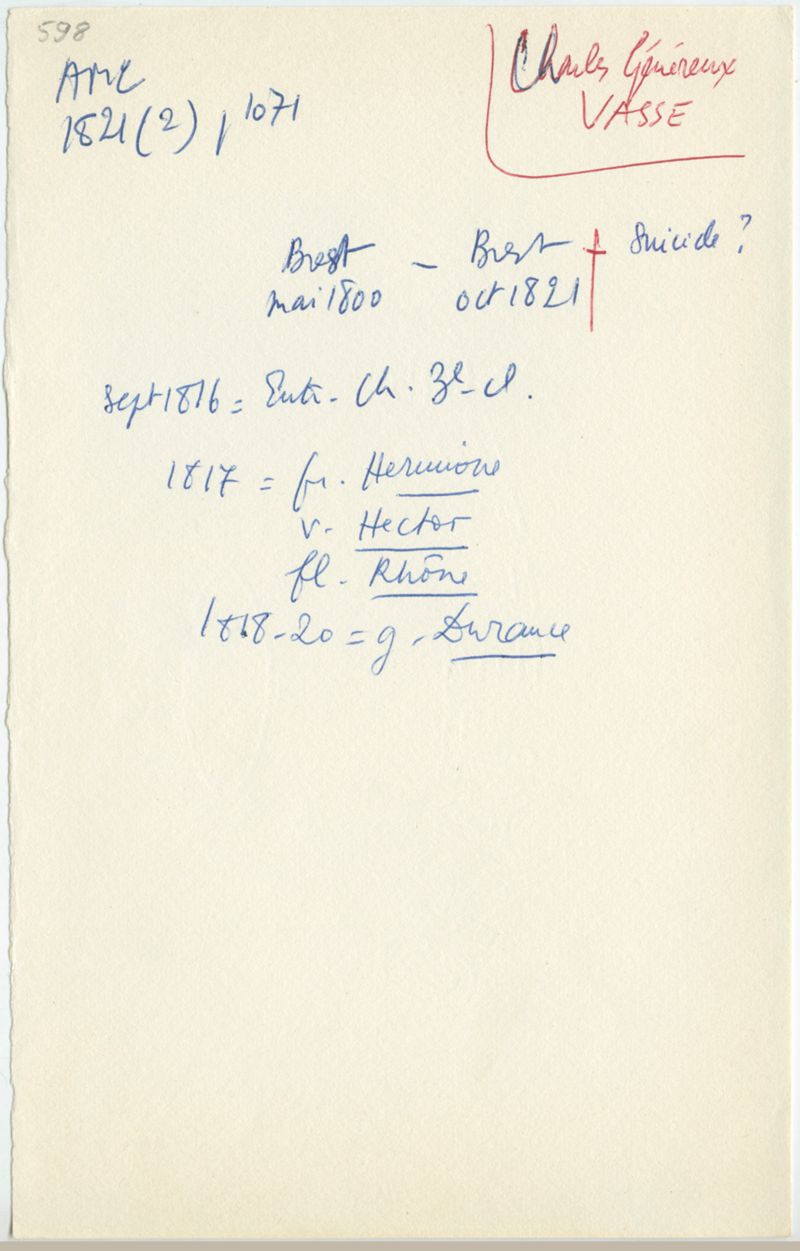 598
AMC
1821 (2) p 1071
Charles Généreux
VASSE
Brest – Brest † Suicide ?
mai 1800 oct 1821
Sept 1816 = Ch.
1817 = fr. Hermione
v. Hector
fl. Rhône
1818-20 = g. Durance